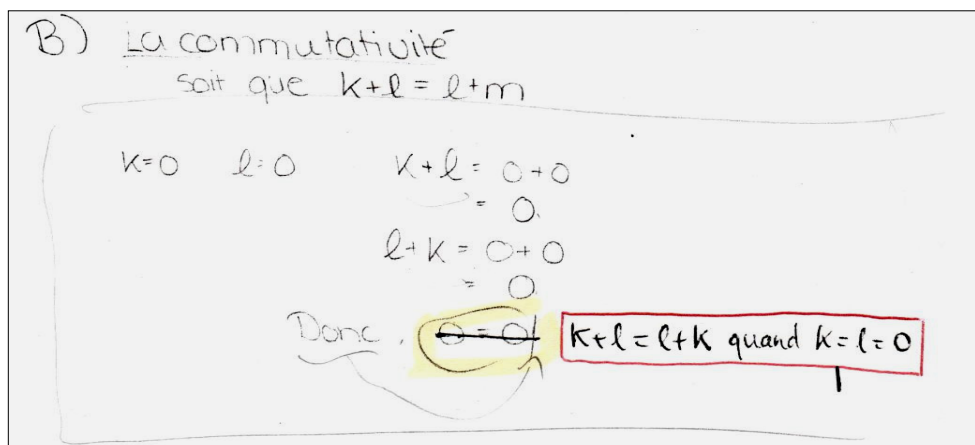 B) La commutativité
soit que k+l = l+m
k=0 l=0 k+l = 0+0
= 0.
l+k = 0+0
= 0
Donc, 0=0 k+l=l+k quand k=l=0